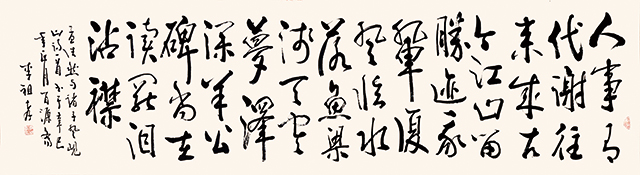 人事有
代谢往
来成古
今江山留
勝迹我
輩復
登临水
落魚梁
浅天寒
夢澤
深羊公
碑尚在
读罷泪
沾襟
孟浩然与诸子登岘
山诗一首于辛巳
年月百源斋
李祖